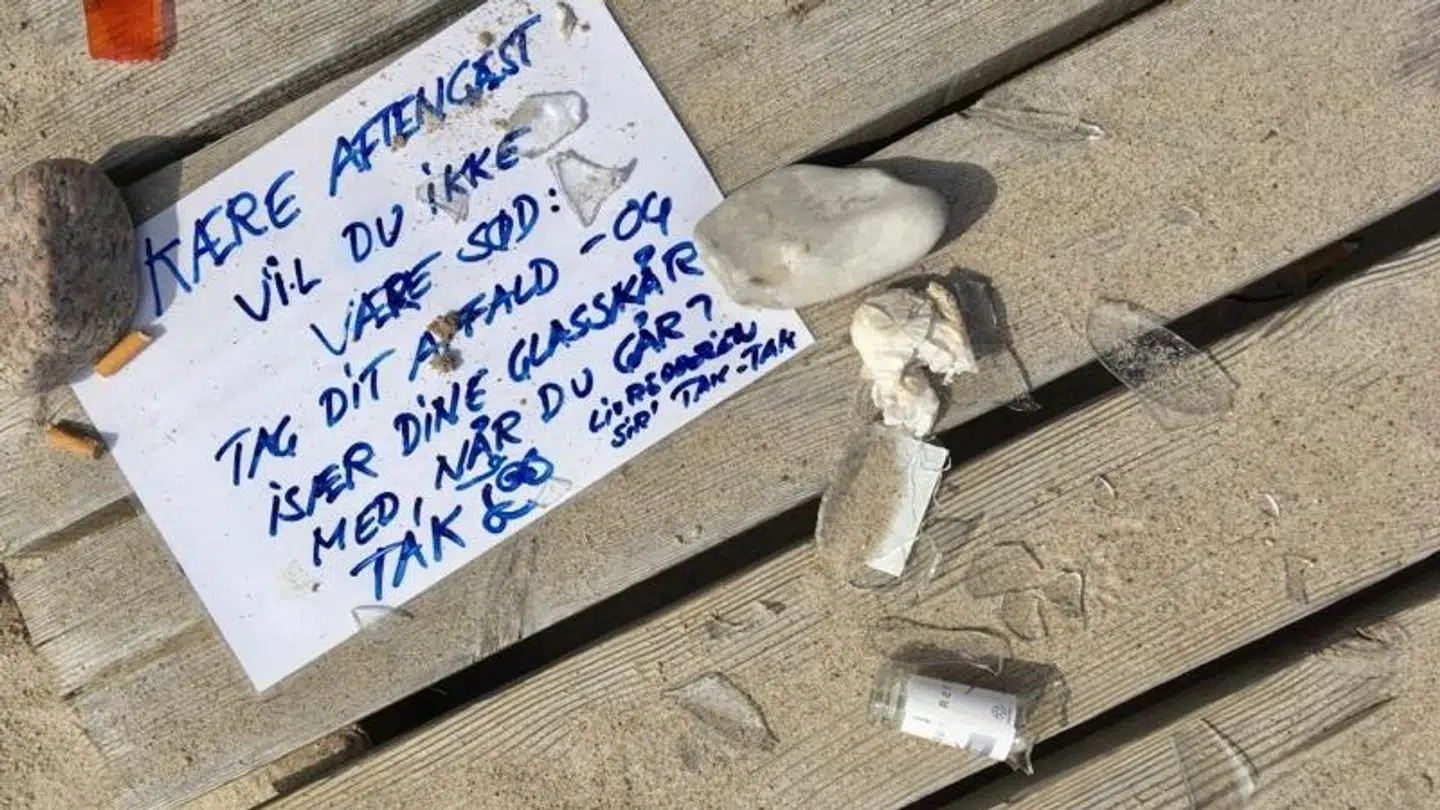 KÆRE AFTENGÆST
VIL DU IKKE
VÆRE SØD:
TAG DIT AFFALD - OG
ISÆR DINE GLASSKÅR
MED, NÅR DU GÅR?
TAK
LIVREDDEREN
SIR' TAK-TAK